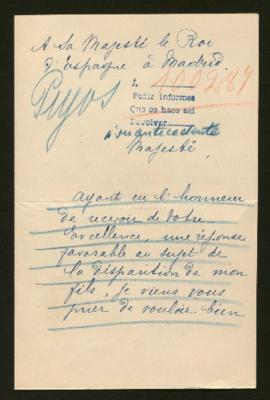 A Sa Majesté le Roi
d'Espagne à Madrid.
1.
100287
Pedir informes
Que se haga asi
Devolver
Majesté,
Ayant eu l'honneur
de reçevoir de Votre
Excellence, une réponse
favorable au sujet de
la disparition de mon
fils, je viens vous
prier de vouloir bien